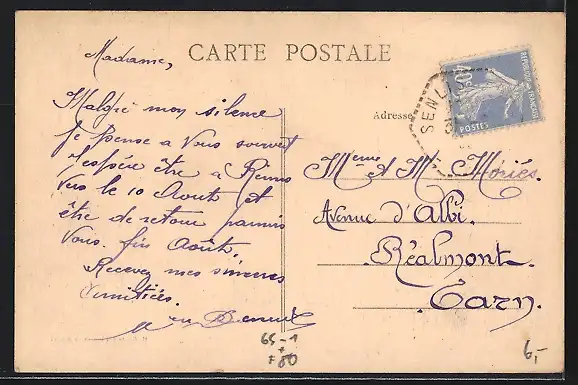 CARTE POSTALE
Madame,
Malgré mon silence
Je Pense a Vous souvent
J'espére être a Reims
Vers le 10 Aout et
être de retour parmis
Vous. fin Août.
Recevez mes sinceres
Amitiées.
Adresse
SENLIS
40c
RÉPUBLIQUE FRANÇAISE
POSTES
Meme et Mr Moriés.
Avenue d'Albi.
Réalmont.
Tarn.
65-1
+
F80
6,-